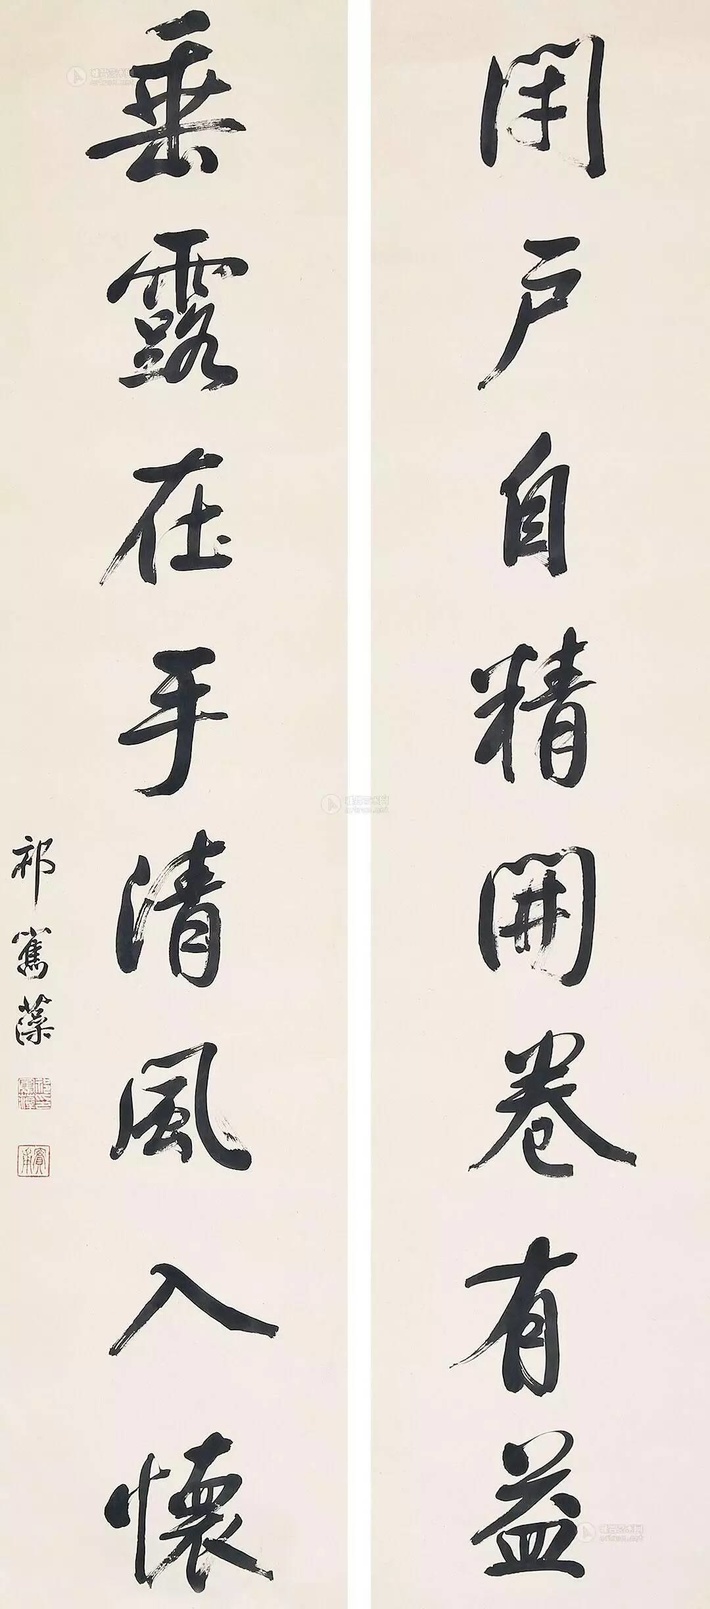 閉户自精開卷有益
垂露在手清風入懷
祁寯藻
實甫